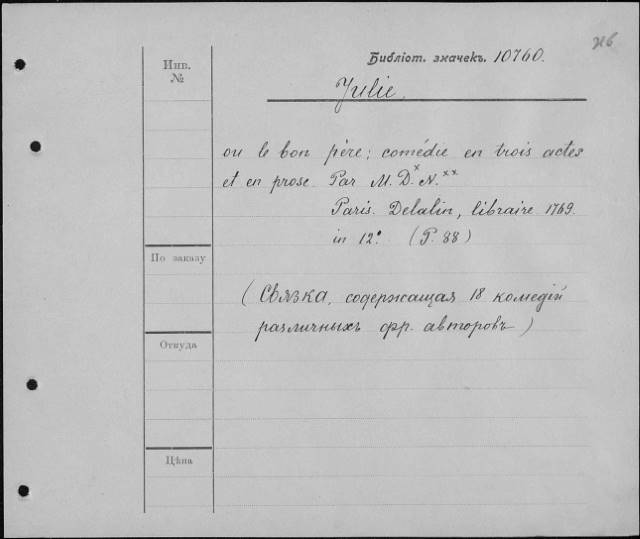 Инв.
№
Библіот. значекъ. 10760.
Julie.
ou le bon père; comédie en trois actes
et en prose. Par M. D.x N.xx
Paris. Delalin, libraire 1769.
in 12º. (P. 88)
По заказу
(Связка, содержащая 18 комедій
различныхъ фр. авторовъ)
Откуда
Цѣна